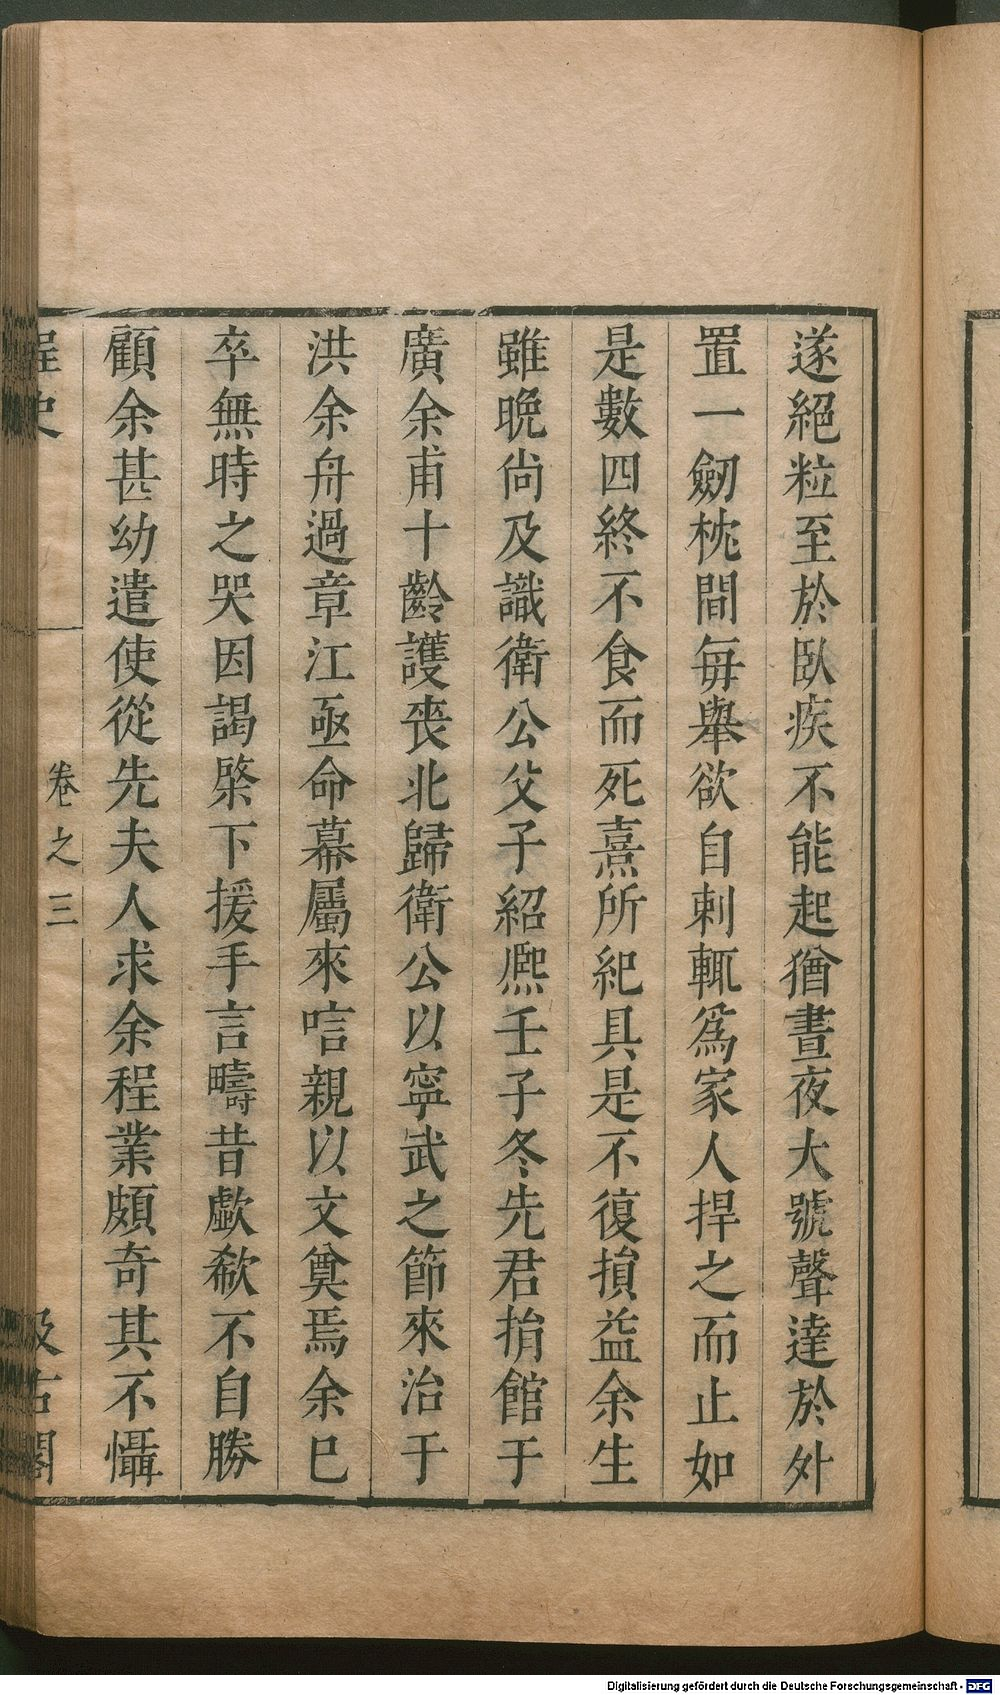 遂絕粒至於臥疾不能起猶晝夜大號聲達於外
置一劒枕間每舉欲自刺輒爲家人捍之而止如
是數四終不食而死熹所紀具是不復損益余生
雖晩尙及識衛公父子紹熈壬子冬先君捐館于
廣余甫十齡護喪北歸衛公以寧武之節來治于
洪余舟過章江亟命幕屬來唁親以文奠焉余巳
卒無時之哭因謁棨下援手言疇昔歔欷不自勝
顧余甚幼遣使從先夫人求余程業頗奇其不懾
桯史
卷之三
汲古閣
Digitalisierung gefördert durch die Deutsche Forschungsgemeinschaft - DFG